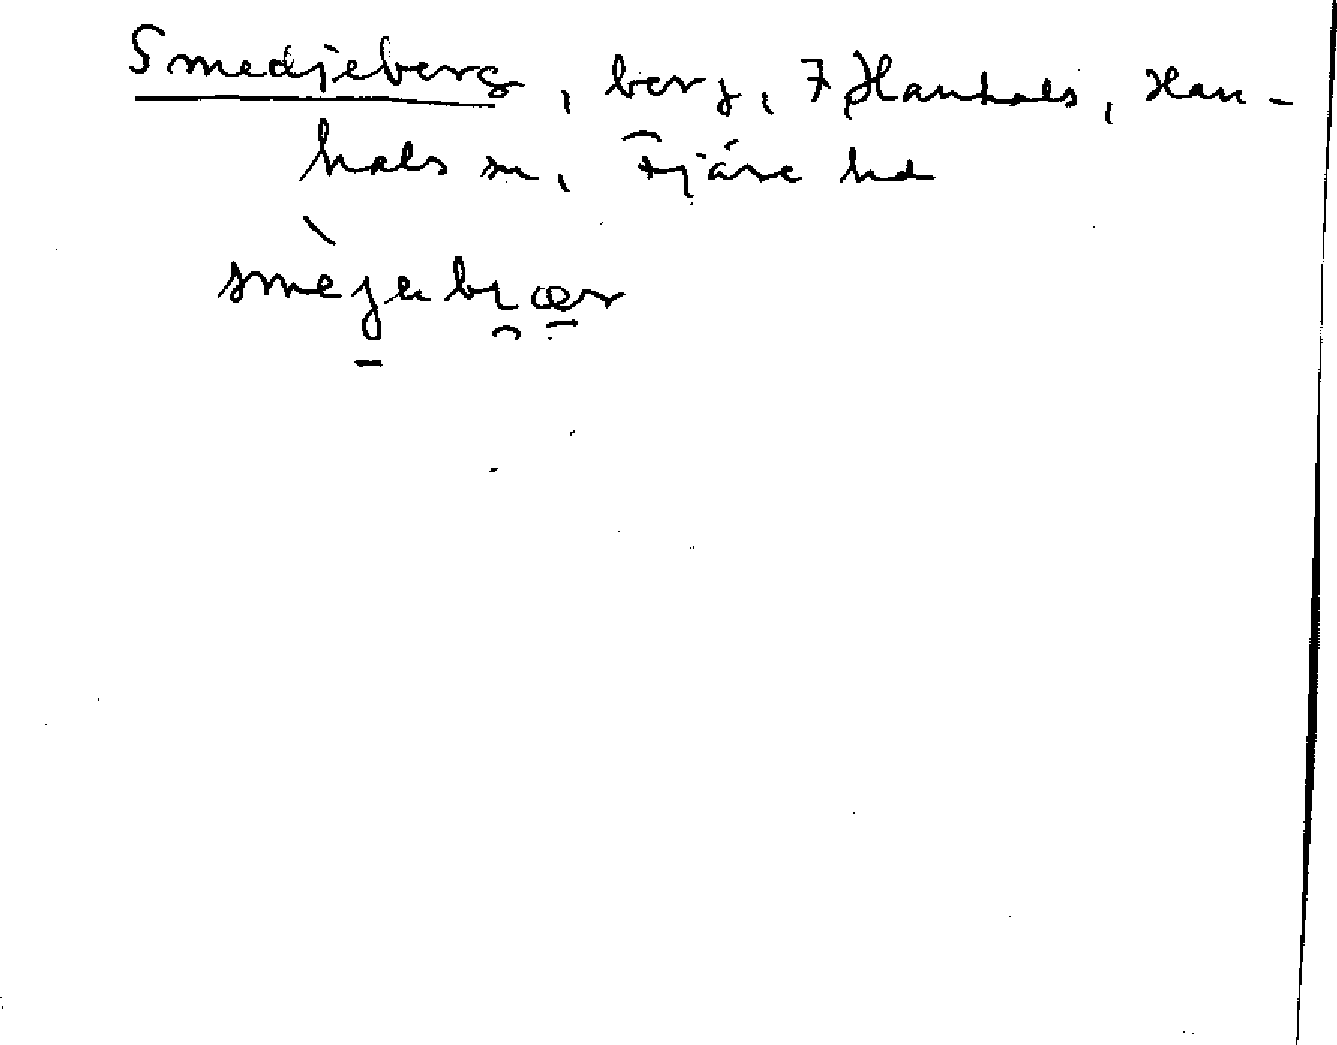 Smedjeberg, berg, 7 Hanhals, Han-
hals sn, Fjäre hd